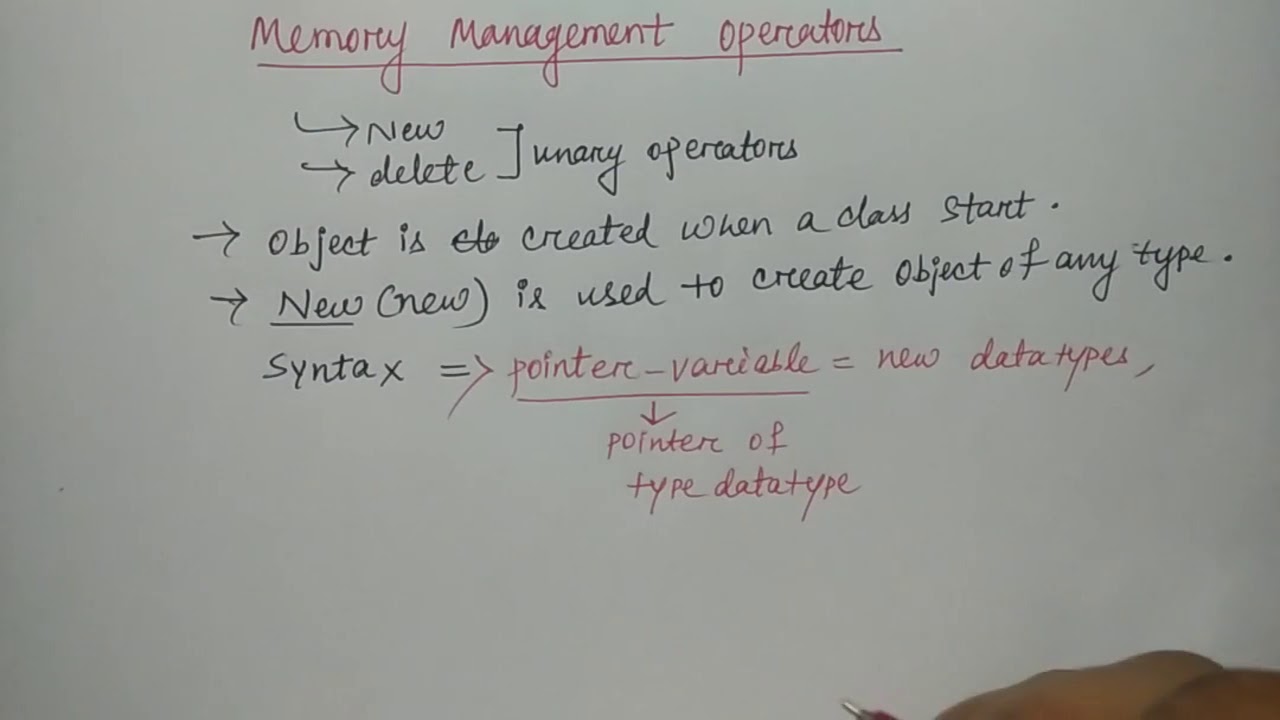 Memory Management operators
→ New
→ delete ] unary operators
→ Object is created when a class start.
→ New (new) is used to create object of any type.
Syntax => pointer-variable = new datatypes,
↓
pointer of
type datatype